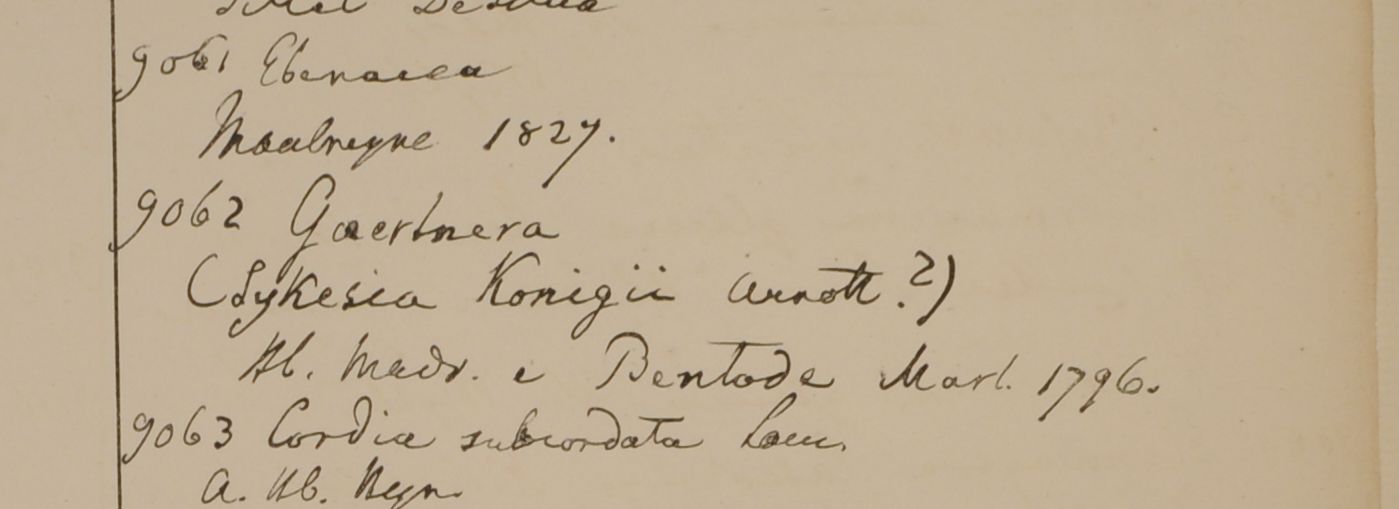 9061 Ebenacea
1827.
9062 Gaertnera
(Sykesia Konigii Arnott.?)
Hb. Madr. e Bentode Mart. 1796.
9063 Cordia subcordata Lam.
a. Hb. Heyn.